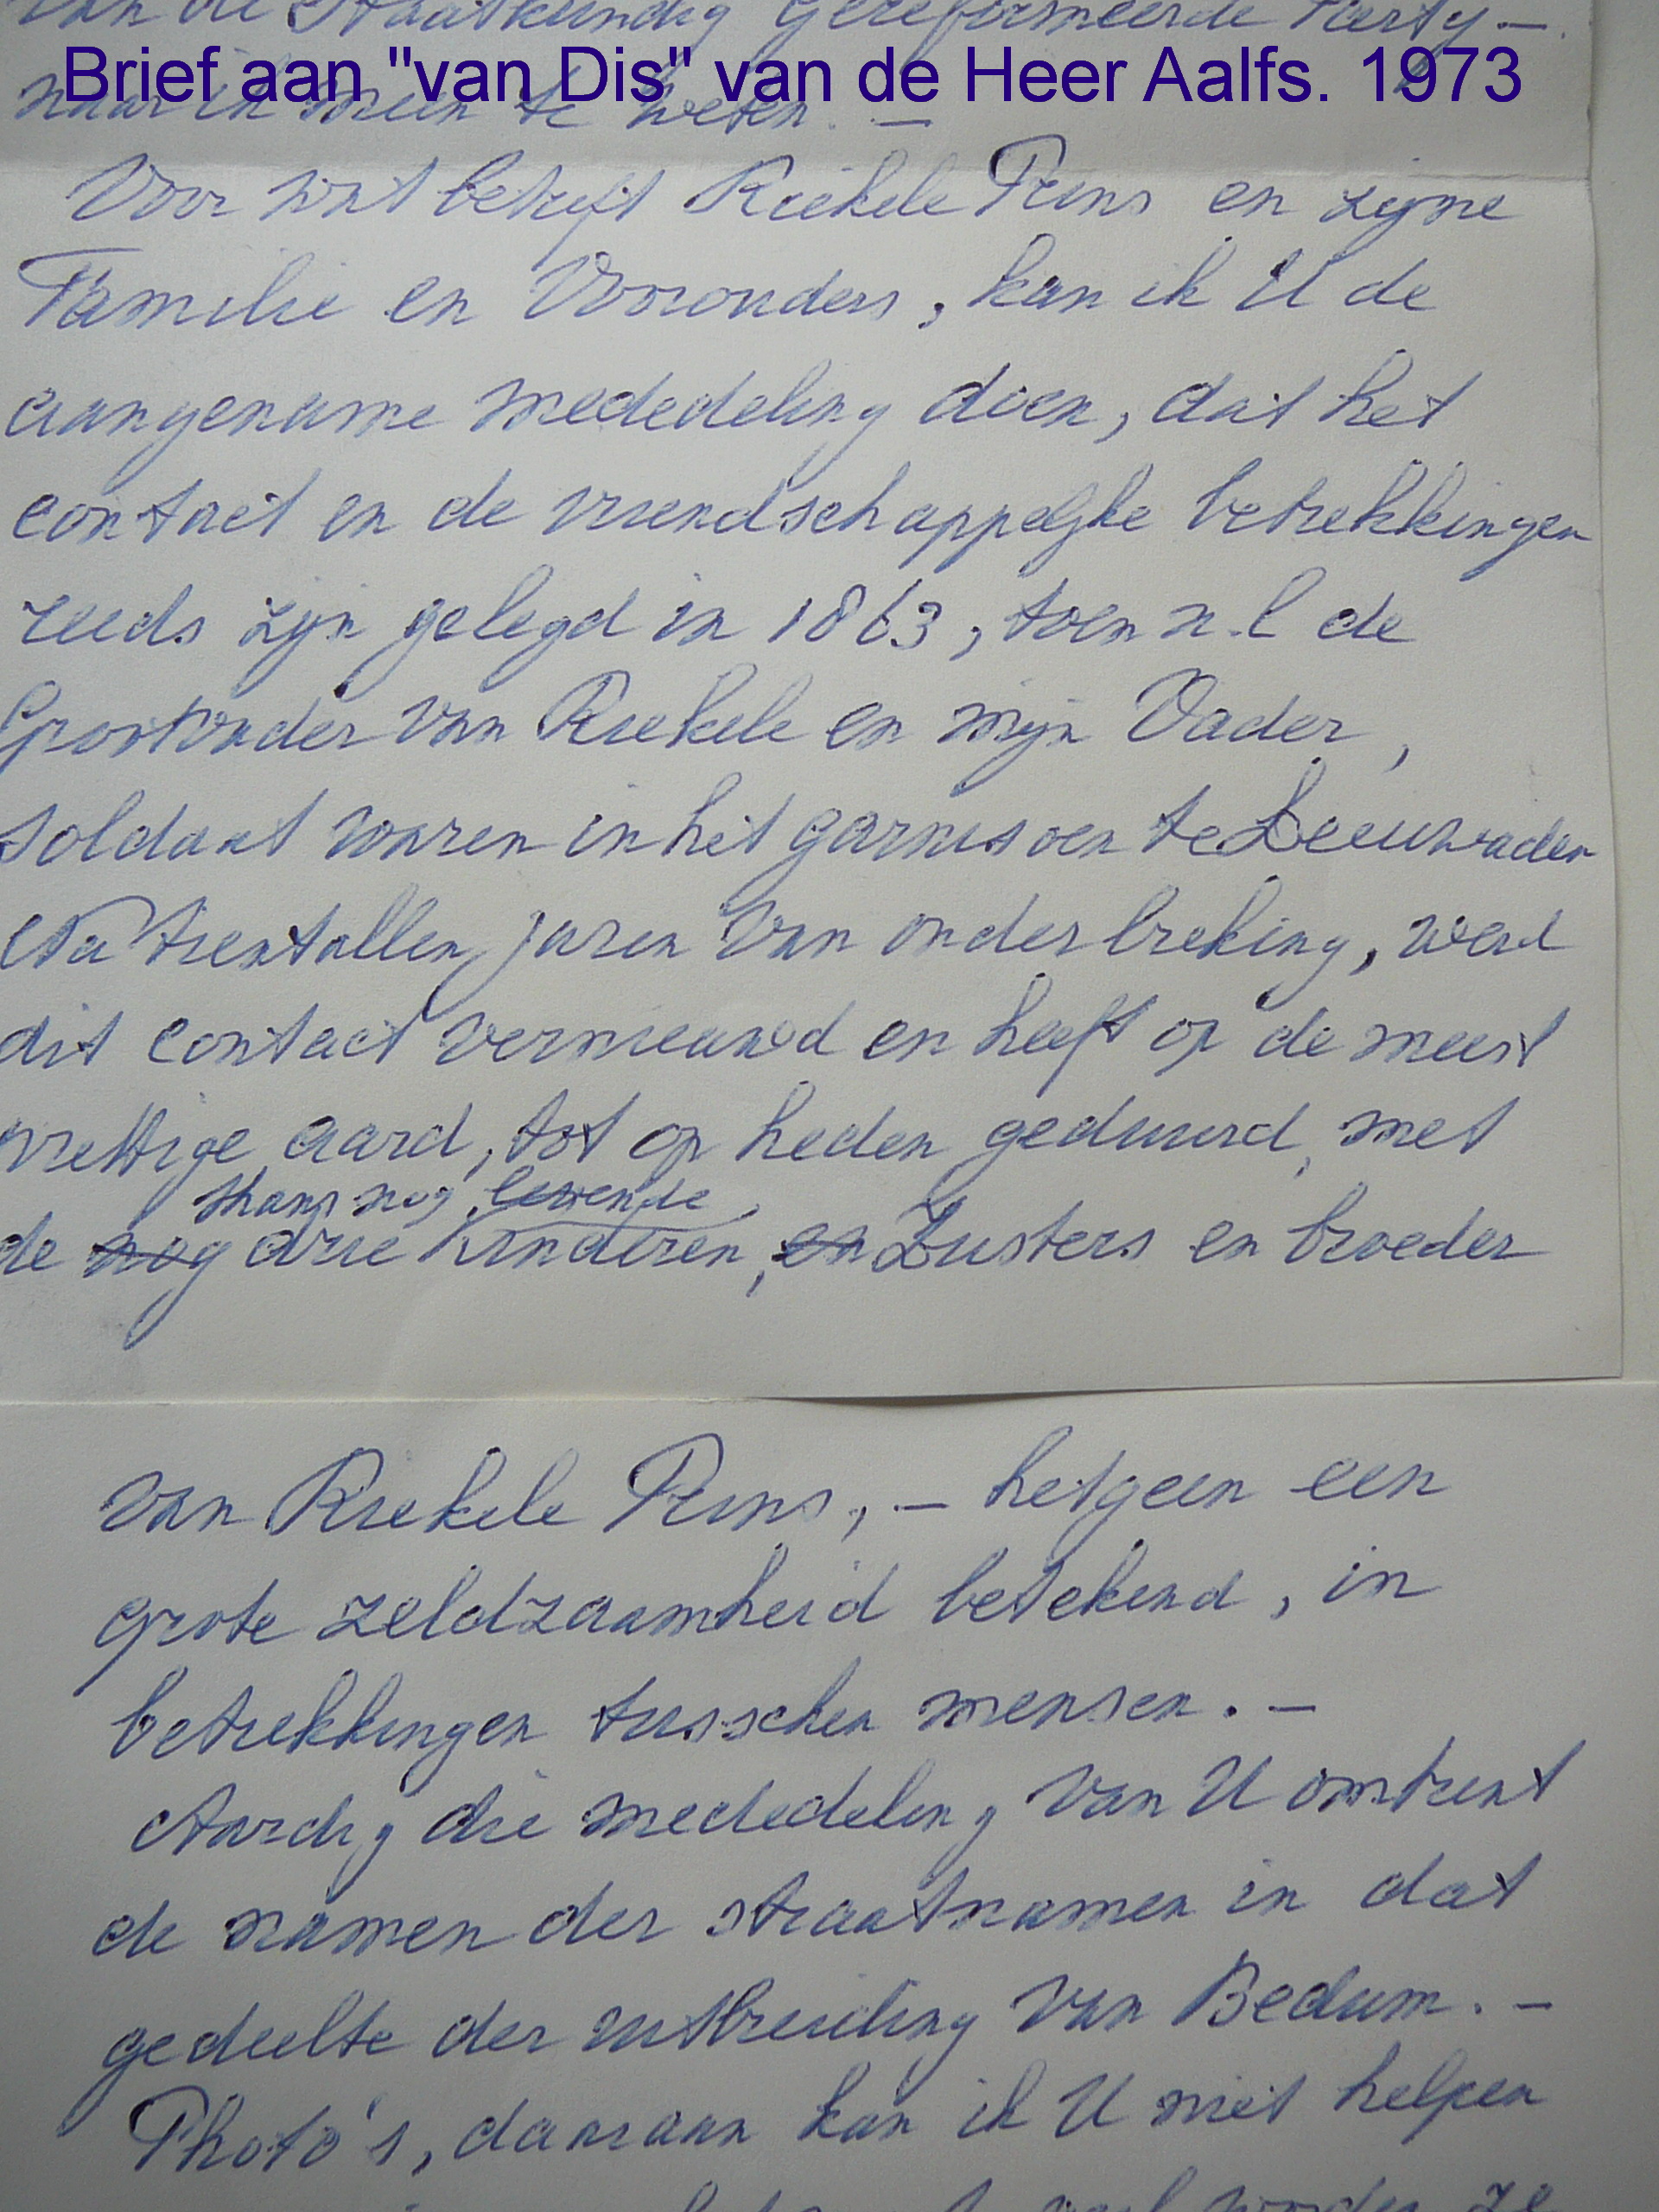 van de Staatkundig Gereformeerde Party –.
Brief aan "van Dis" van de Heer Aalfs. 1973
naar ik meen te weten. –
Voor wat betreft Riekele Prins en zijne
Familie en Voorouders, kan ik U de
aangename mededeling doen, dat het
contact en de vriendschappelijke betrekkingen
reeds zijn gelegd in 1863, toen n.l de
Grootvader van Riekele en mijn Vader,
soldaat waren in het garnisoen te Leeuwarden
Na tientallen jaren van onderbreking, werd
dit contact vernieuwd en heeft op de meest
prettige aard, tot op heden geduurd, met
thans nog levende,
de nog drie kinderen, en Zusters en broeder
van Riekele Prins, – hetgeen een
grote zeldzaamheid betekend, in
betrekkingen tusschen mensen. –
Aardig die mededeling van U omtrent
de namen der straatnamen in dat
gedeelte der uitbreiding van Bedum. –
Photo's, daaraan kan ik U niet helpen